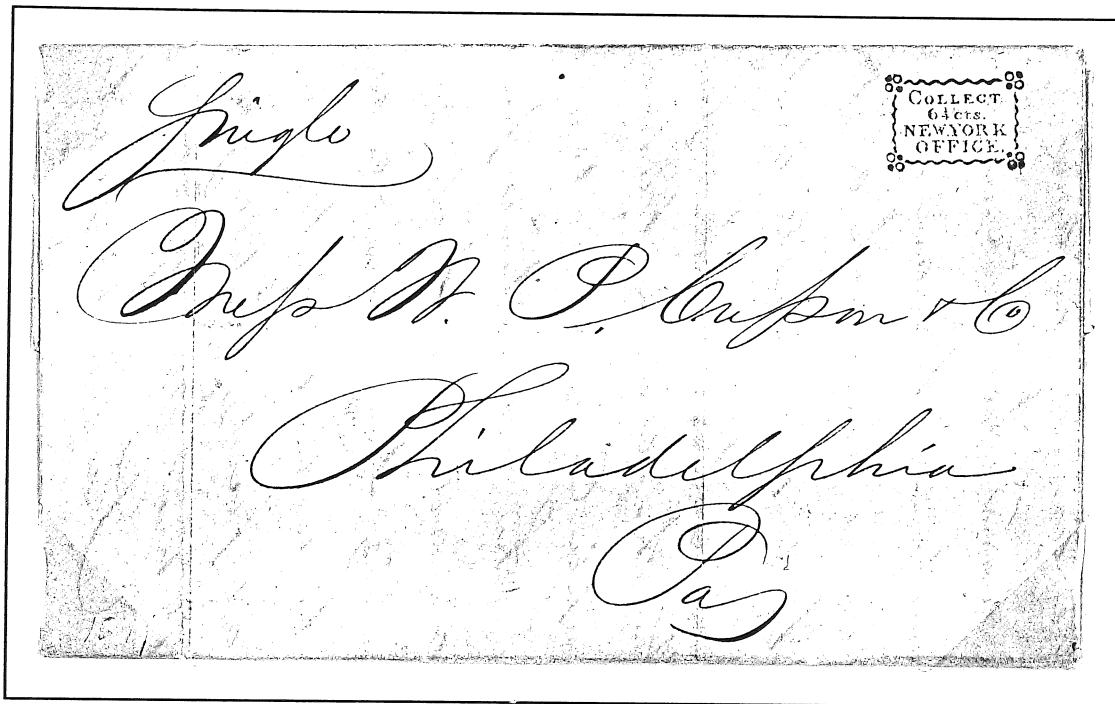 Single
COLLECT
6¼ cts.
NEW YORK
OFFICE.
Mess W. P. Cresson & Co
Philadelphia
Pa